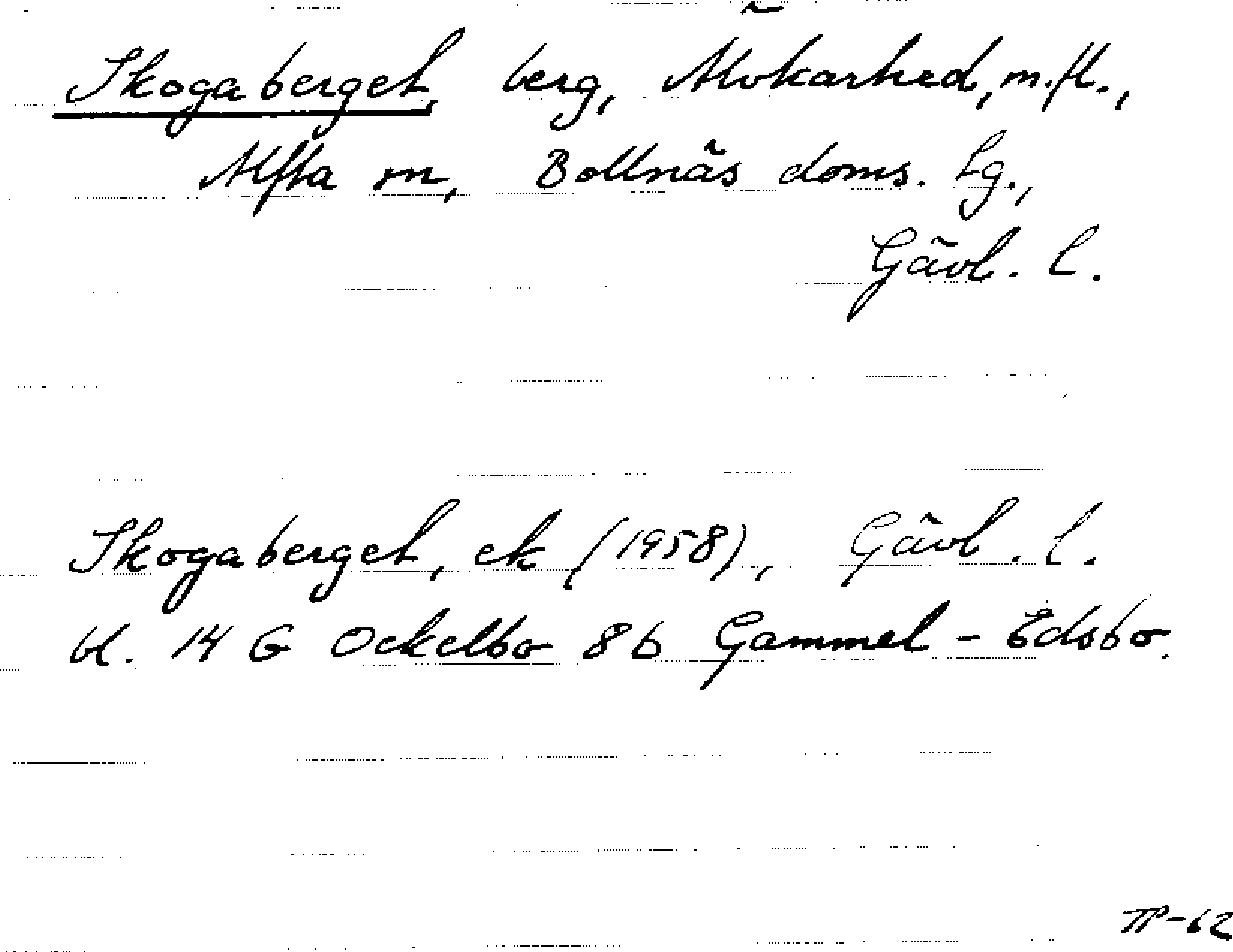 Skogaberget, berg, Älvkarhed, m.fl.,
Alfta sn, Bollnäs doms. lg.,
Gävl. l.
Skogaberget, ek (1958), Gävl. l.
bl. 14 G Ockelbo 8 b Gammel - Edsbo.
TP-62